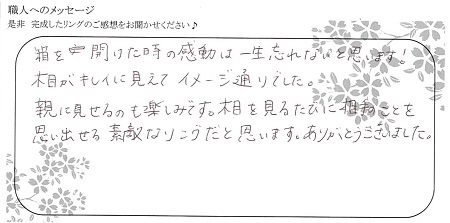 職人へのメッセージ
是非 完成したリングのご感想をお聞かせください♪
箱を開けた時の感動は一生忘れないと思います!
木目がキレイに見えてイメージ通りでした。
親に見せるのも楽しみです。木目を見るたびに
ことを
思い出せる素敵なリングだと思います。ありがとうございました。